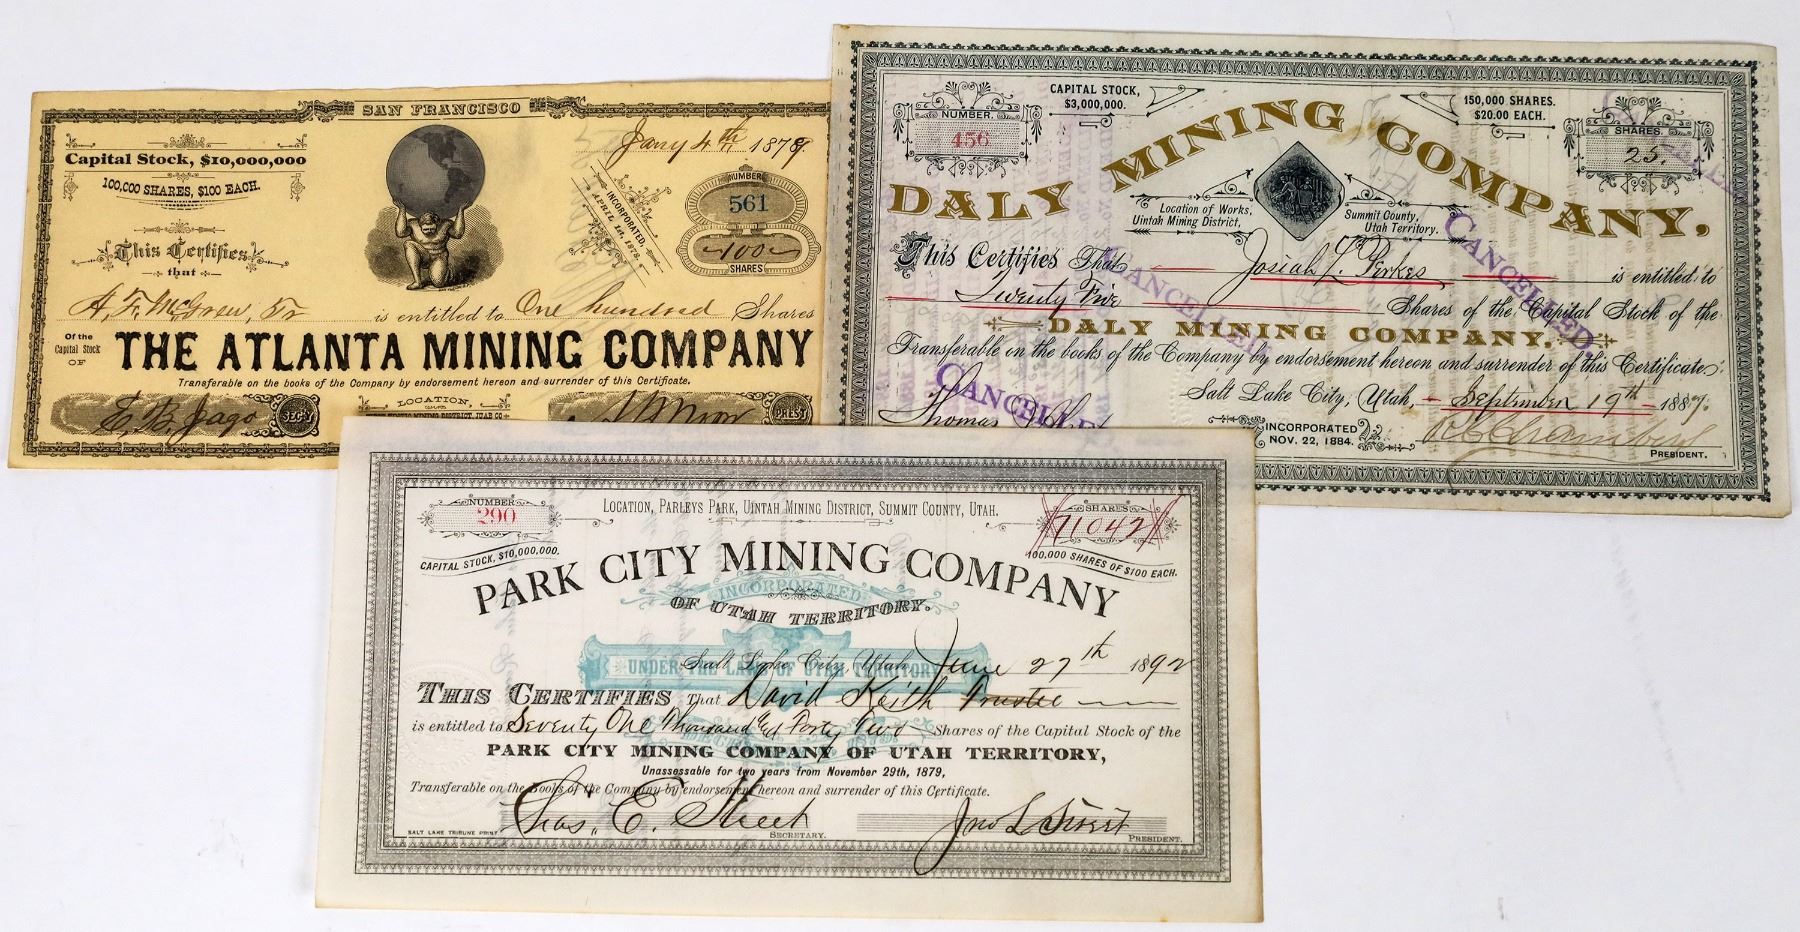 SAN FRANCISCO
Capital Stock, $10,000,000
100,000 SHARES, $100 EACH.
Jany 4th 1879.
INCORPORATED,
APRIL 1st, 1878.
NUMBER
561
100
SHARES
This Certifies
that
A. F. McGrew, Tr is entitled to One hundred Shares
Of the
Capital Stock
OF
THE ATLANTA MINING COMPANY
Transferable on the books of the Company by endorsement hereon and surrender of this Certificate.
LOCATION,
MINING DISTRICT, JUAB CO
SEC'Y
PREST
CAPITAL STOCK,
$3,000,000.
150,000 SHARES.
$20.00 EACH.
NUMBER.
456
SHARES.
25.
DALY MINING COMPANY,
Location of Works,
Uintah Mining District,
Summit County,
Utah Territory.
This Certifies That Josiah L. Perkes is entitled to
Twenty Five Shares of the Capital Stock of the
DALY MINING COMPANY.
Transferable on the books of the Company by endorsement hereon and surrender of this Certificate.
Salt Lake City, Utah, September 19th 1887.
CANCELLED.
CANCELLED.
CANCELLE
Thomas
INCORPORATED
NOV. 22, 1884.
R C Chambers
PRESIDENT.
NUMBER
290
LOCATION, PARLEYS PARK, UINTAH MINING DISTRICT, SUMMIT COUNTY, UTAH.
SHARES
71042
CAPITAL STOCK, $10,000,000.
100,000 SHARES OF $100 EACH.
PARK CITY MINING COMPANY
INCORPORATED
OF UTAH TERRITORY.
UNDER THE LAWS OF UTAH TERRITORY
Salt Lake City, Utah June 27th 1892
THIS CERTIFIES That David Keith Trustee
is entitled to Seventy One Thousand and Forty Two Shares of the Capital Stock of the
PARK CITY MINING COMPANY OF UTAH TERRITORY,
Unassessable for two years from November 29th, 1879,
Transferable on the Books of the Company by endorsement hereon and surrender of this Certificate.
Chas. E. Street
SECRETARY.
Jno L Street
PRESIDENT.
SALT LAKE TRIBUNE PRINT